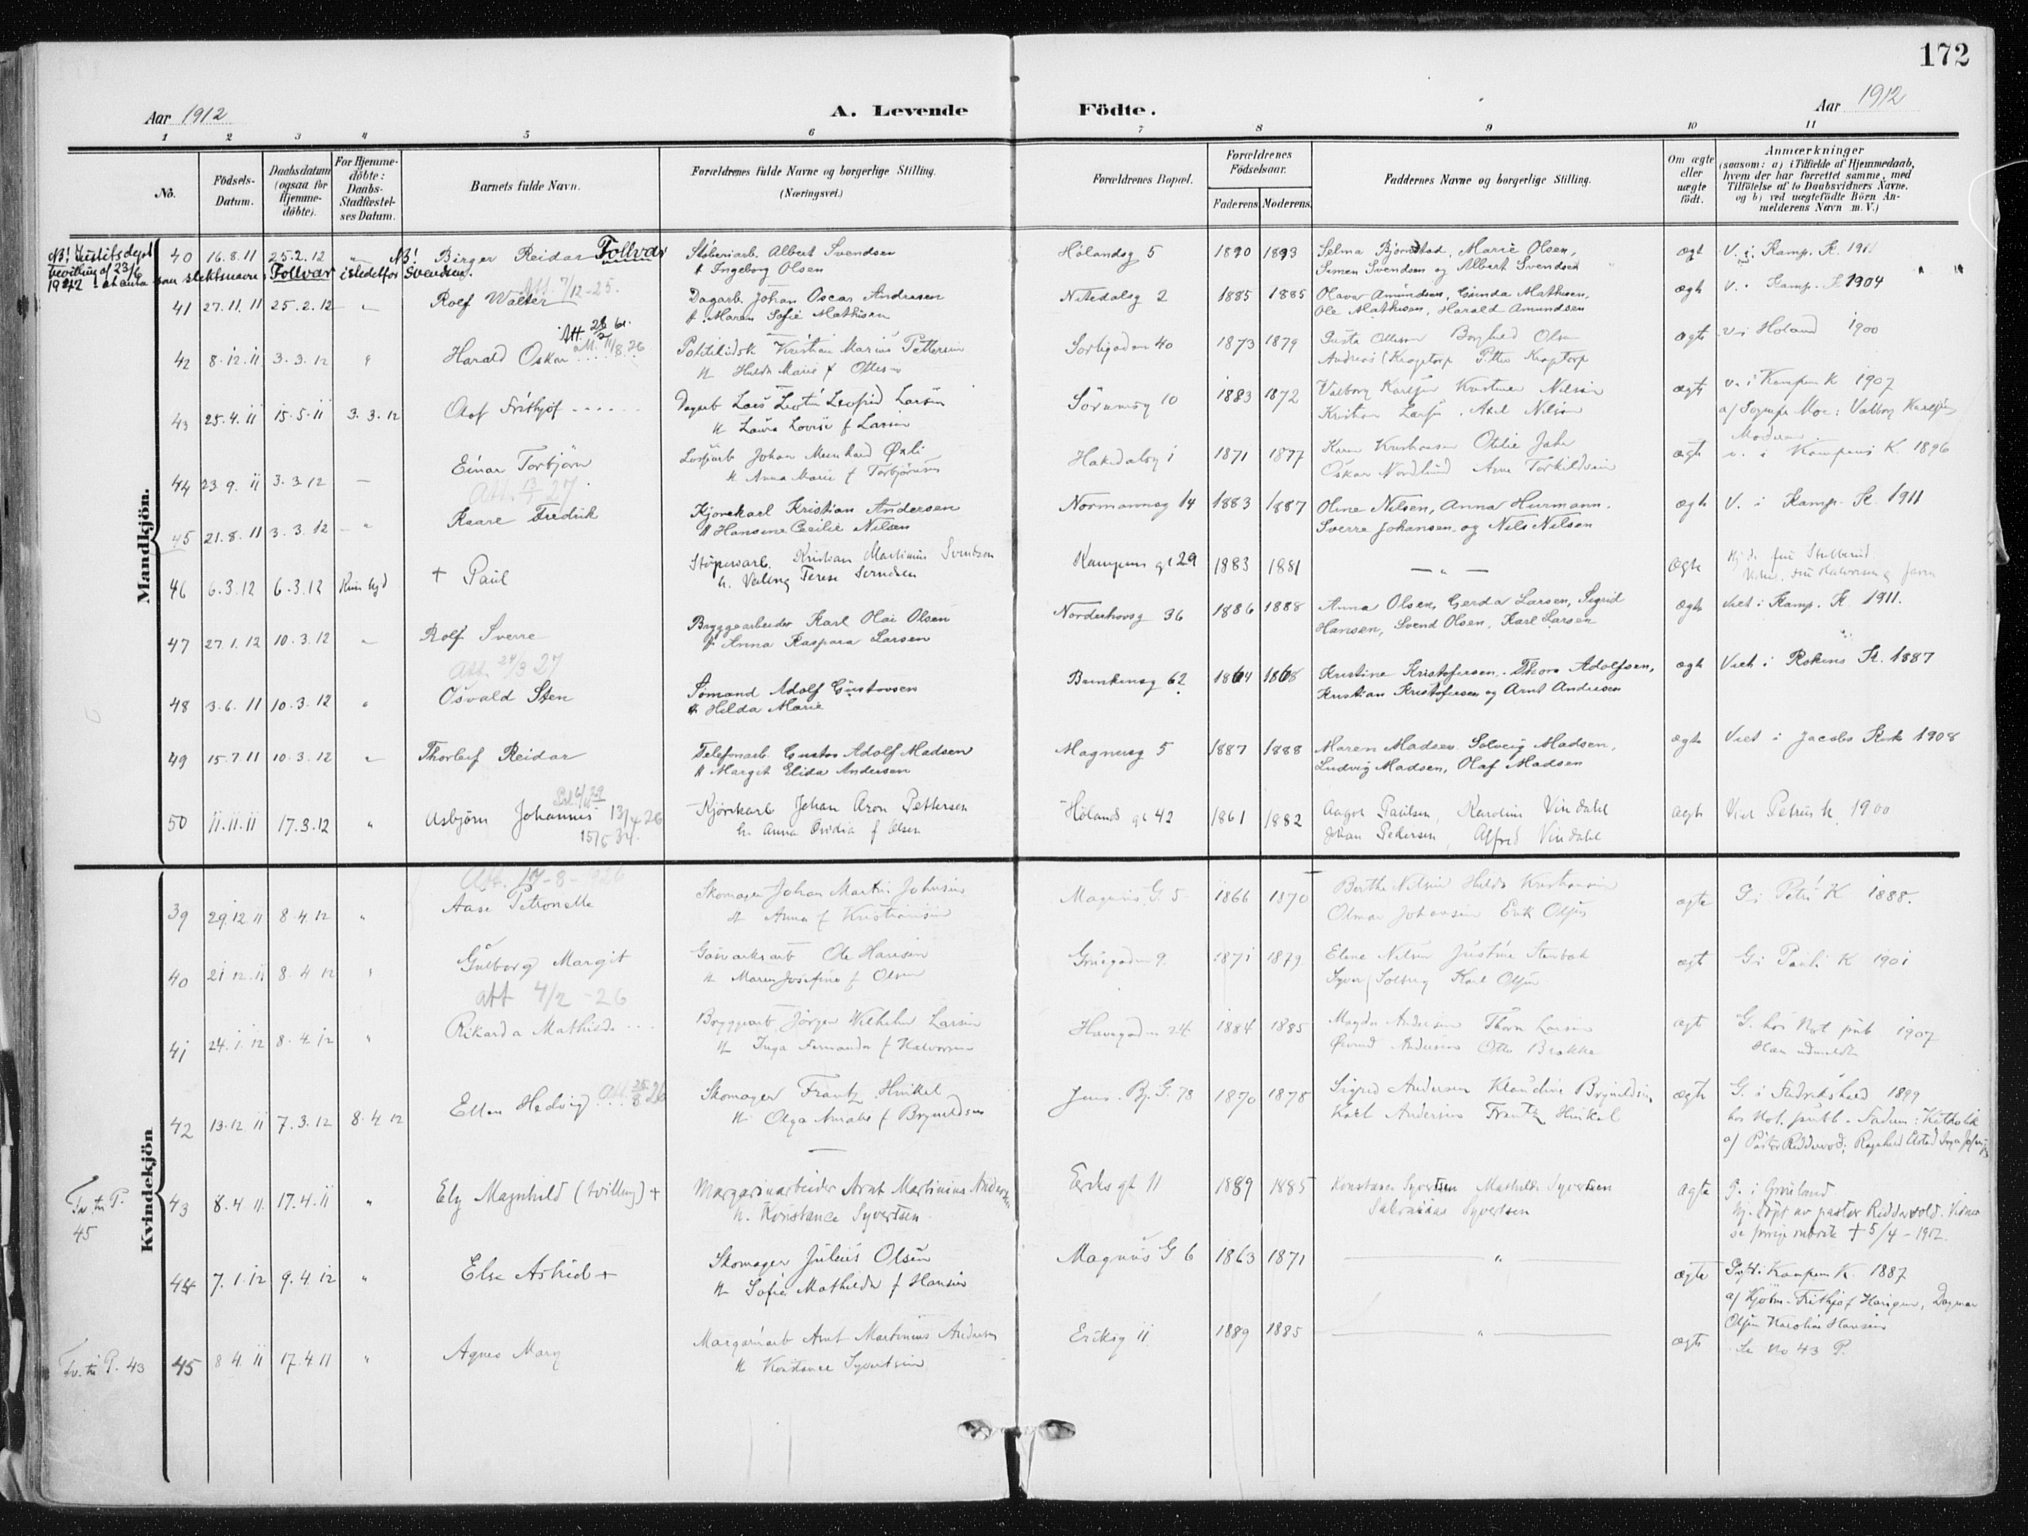 172
Aar 1912
A. Levende Födte.
Aar 1912
1 2 3 4 5 6 7 8 9 10 11
No.
Födsels-Datum.
Daabsdatum (ogsaa for Hjemmedöbte).
For Hjemmedöbte: Daabs-Stadfæstelses Datum.
Barnets fulde Navn.
Forældrenes fulde Navne og borgerlige Stilling. (Næringsvei.)
Forældrenes Bopæl.
Forældrenes Födselsaar.
Faderens. Moderens.
Faddernes Navne og borgerlige Stilling.
Om ægte eller uægte födt.
Anmærkninger
(saasom: a) i Tilfælde af Hjemmedaab, hvem der har forrettet samme, med Tilföielse af to Daabsvidners Navne. og b) ved uægtefödte Börn Anmelderens Navn m. V.)
Mandkjön.
NB! Justitsdept bevilling af 23/6 1942 at anta som slektsnavn: Follvar istedetfor Svendsen.
40 16.8.11 25.2.12 " NB! Birger Reidar Follvar
Støberiarb. Albert Svendsen
H. Ingeborg Olsen
Hølandsg 5 1890 1893
Selma Bjørnstad, Marie Olsen,
Simen Svendsen og Albert Svendsen
ægt V. i. Kamp. K. 1911
Att. 7/12-25.
41 27.11.11 25.2.12 Rolf Walter
Dagarb. Johan Oscar Andresen
H. Maren Sofie Mathisen
Nitedalsg 2 1885 1885
Olava Amundsen, Gunda Mathisen,
Ole Mathisen, Harald Amundsen
ægt V. i Kamp. K 1904
42 8.12.11 3.3.12 " Harald Oskar
Kristian Marius Pettersen
H. Hilda Marie f Ottesen
Sorligaden 40 1873 1879
ægte v i Høland 1900
43 25.4.11 15.5.11 3.3.12 Olaf Frithjof
Dagarb Lars Leofred Larsen
H Laura Lovise f Larsen
Sörumsg 10 1883 1872
Valborg Karlsen Kristine Nilsen
Kristian Larsen, Axel Nilsen
ægte v. i Kampen K 1907
44 23.9.11 3.3.12 Einar Torbjörn
Johan Meinhard Øxli
H Anna Marie f Torbjörnsen
Hakedalsg 1 1871 1877
Oskar Nordlund Arne Torkildsen
ægt v. i Kampens K. 1896
Att. 13/1 27.
45 21.8.11 3.3.12 " Kaare Fredrik
Kjørekarl Kristian Andersen
H Hansine Cecilie Nilsen
Normannsg 14 1883 1887
Oline Nilsen, Anna Hurmann.
Sverre Johansen og Nils Nilsen
ægt V. i Kamp. K. 1911
46 6.3.12 6.3.12 + Paul
Kristian Martinius Svendsen
H. Valborg Terese Svendsen
Kampens gt 29 1883 1881
— " —
ægte
47 27.1.12 10.3.12 Rolf Sverre
Bryggearbeider Karl Olai Olsen
H. Anna Kaspara Larsen
Norderhovsg 36 1886 1888
Anna Olsen, Gerda Larsen, Sigrid
Hansen, Svend Olsen, Karl Larsen
ægt Viet i Kamp. K 1911.
Att. 24/3 27
48 3.6.11 10.3.12 " Osvald Sten
Sømand Adolf Gustavsen
H Hilda Marie
Brinkensg 62 1864 1868
Kristine Kristofersen. Thora Adolfsen,
Kristian Kristofersen og Arnt Andersen
ægt Viet i Rokens K. 1887
49 15.7.11 10.3.12 Thorleif Reidar
Telefonarb. Gustav Adolf Madsen
H Margit Elida Andersen
Magnusg 5 1887 1888
Maren Madsen. Solveig Madsen,
Ludvig Madsen, Olaf Madsen
ægte Viet i Jacobs Kirke 1908
50 11.11.11 17.3.12 " Asbjörn Johannes 13/4 26
15/5 34.
Kjörekarl Johan Aron Pettersen
H. Anna Ovidia f Olsen
Hölands gt 42 1861 1882
Aagot Paulsen, Karoline Vindahl
Johan Pedersen, Alfred Vindahl
ægte Viet Petrus K. 1900
Kvindekjön
Att. 17-8-926
39 29.12.11 8.4.12 " Aase Petronelle
Skomager Johan Martin Johnsen
H Anna f Kristiansen
Magnus G. 5 1866 1870
Berthe Nilsen Hilda Kristiansen
Olmar Johansen Erik Olsen
ægte G i Petri K 1888.
40 21.12.11 8.4.12 " Gulborg Margit
Gasværksarb Ole Hansen
H Maren Josefine f Olsen
Gruegaden 9 1871 1879
Elene Nilsen Justine Stenbak
Syver Solberg Karl Olsen
ægt G i Pauli K 1901
Att 4/2 -26
41 24.1.12 8.4.12 " Rikarda Mathilde
Bryggearb Jörgen Wilhelm Larsen
H Inga Fernanda f Halvorsen
Havegaden 24 1884 1885
Magda Andersen Thora Larsen
Øivind Andersen Otto Brakke
ægt G. hos Not. pub 1907
42 13.12.11 7.3.12 8.4.12 Ellen Hedvig Att 25/8 26
Skomager Frantz Hinkel
H. Olga Amalie f Bryneldsen
Jens. Bj. G. 78 1870 1878
Sigrid Andersen Klaudine Bryneldsen
Karl Andersen Frantz Hinkel
ægte G. i Fredrikshald 1899
hos Not. publ. Faderen: Katholik
Fv. tv P. 45
43 8.4.11. 17.4.11 " Ely Magnhild (tvilling) +
Margarinarbeider Arnt Martinius Andersen
H. Konstance Syvertsen.
Eriks gt 11 1889 1885
Konstance Syvertsen Mathilde Syvertsen
Syvertsen
ægte G. i Grønland
Hj. döpt av pastor Ridderwold.
se forrige rubrik + 5/4 - 1912.
44 7.1.12 9.4.12 " Else Astrid +
Skomager Julius Olsen
H Sofie Mathilde f Hansen
Magnus G 6 1863 1871
— " —
ægte Kampen K. 1887
Frithjof Hansen, Dagmar
Olsen Karoline Hansen
Fv. tv P. 43
45 8.4.11 17.4.11 " Agnes Mary
Margarinarb Arnt Martinius Andersen
H Konstance Syvertsen
Eriksg 11 1889 1885
— " —
ægte Se No 43 P.